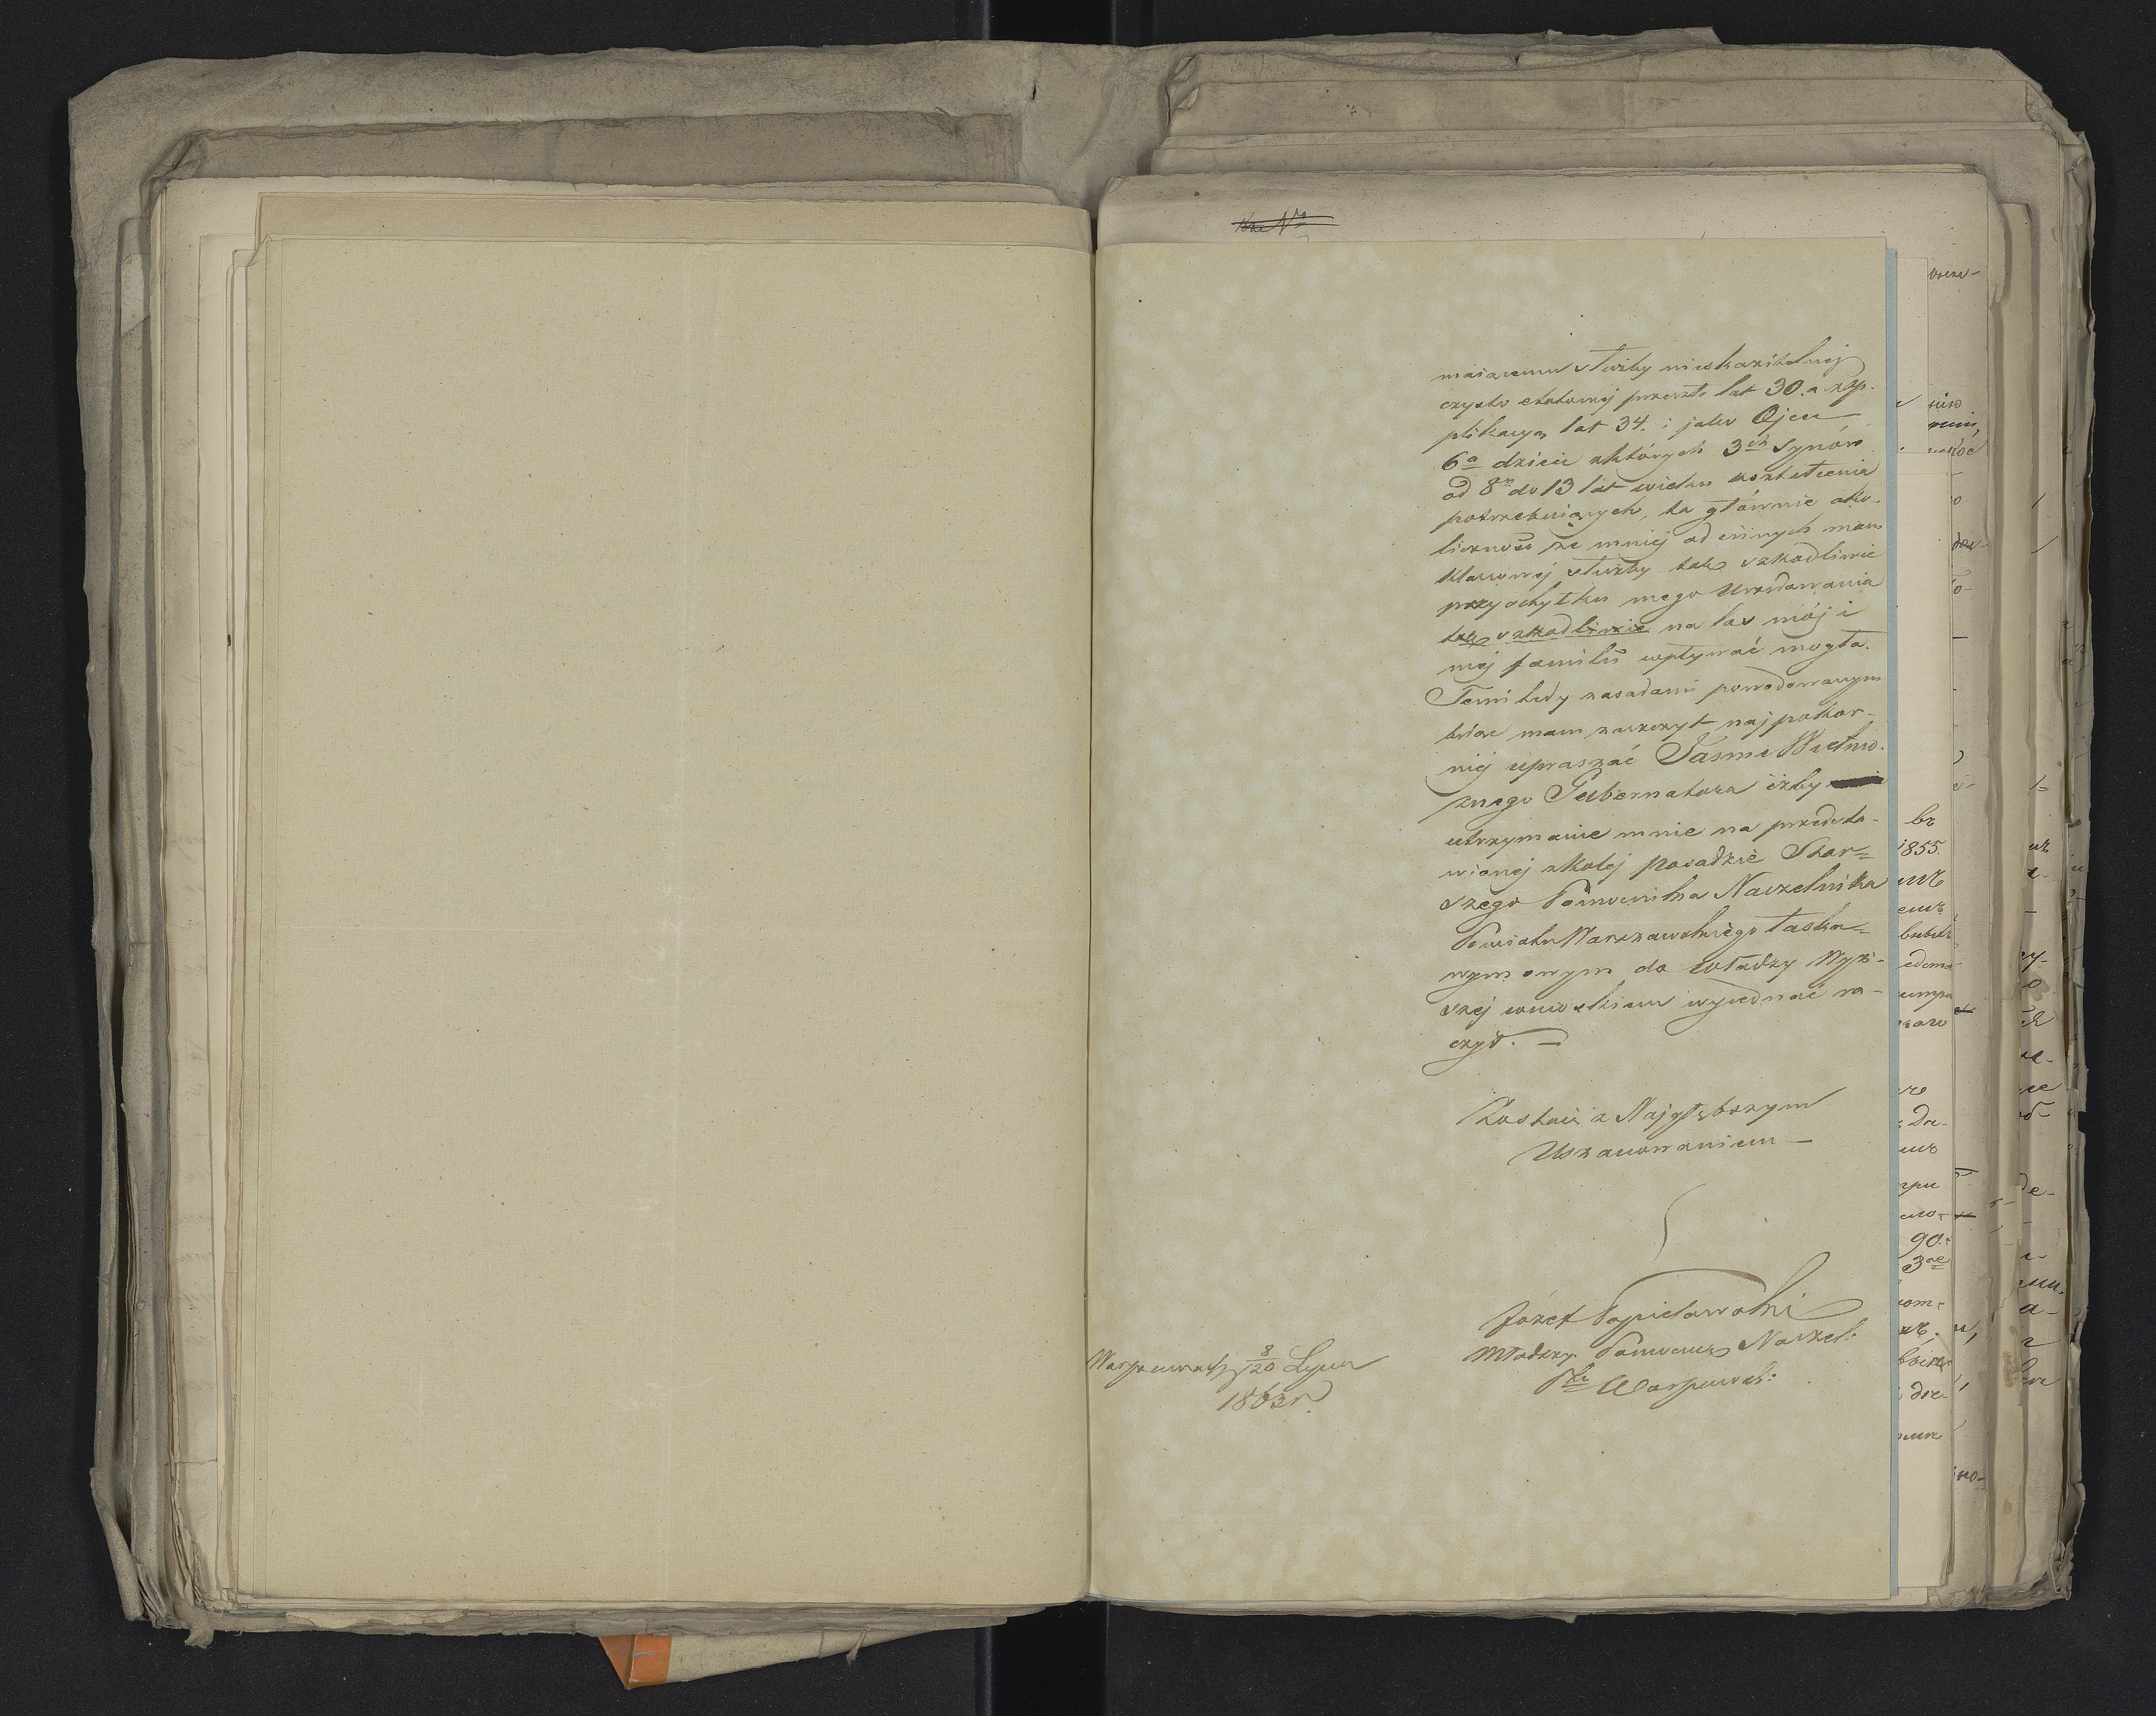 maiącemu służby nieskazitelnej
czysto etatowej przeszło lat 30. a z ap-
plikacyą lat 34. i jako Ojcu
6a dzieci z których 3ch synów
od 8m do 13 lat wieku kształcenia
potrzebuiących, ta głównie oko-
liczność że mniej od innych mam
klassowej służby tak szkodliwie
przy schyłku mego Urzędowania
tak szkodliwie na los mój i
mej familii wpływać mogła.
Temi tedy zasadami powodowanym
będąc mam zaszczyt najpokor-
niej upraszać Jaśnie Wielmo-
żnego Gubernatora iżby
utrzymanie mnie na przedsta-
wionej z kolej posadzie Star-
szego Pomocnika Naczelnika
Powiatu Warszawskiego łaska-
wym swym do władzy Wyż-
szej wnioskiem wyjednać ra-
czył. —
Zostaię z Najgłębszym
Uszanowaniem —
Józef Popielawski
Młodszy Pomocnik Naczel:
Ptu Warszaws:
Warszawa d 8/20 Lipca
1863 r.